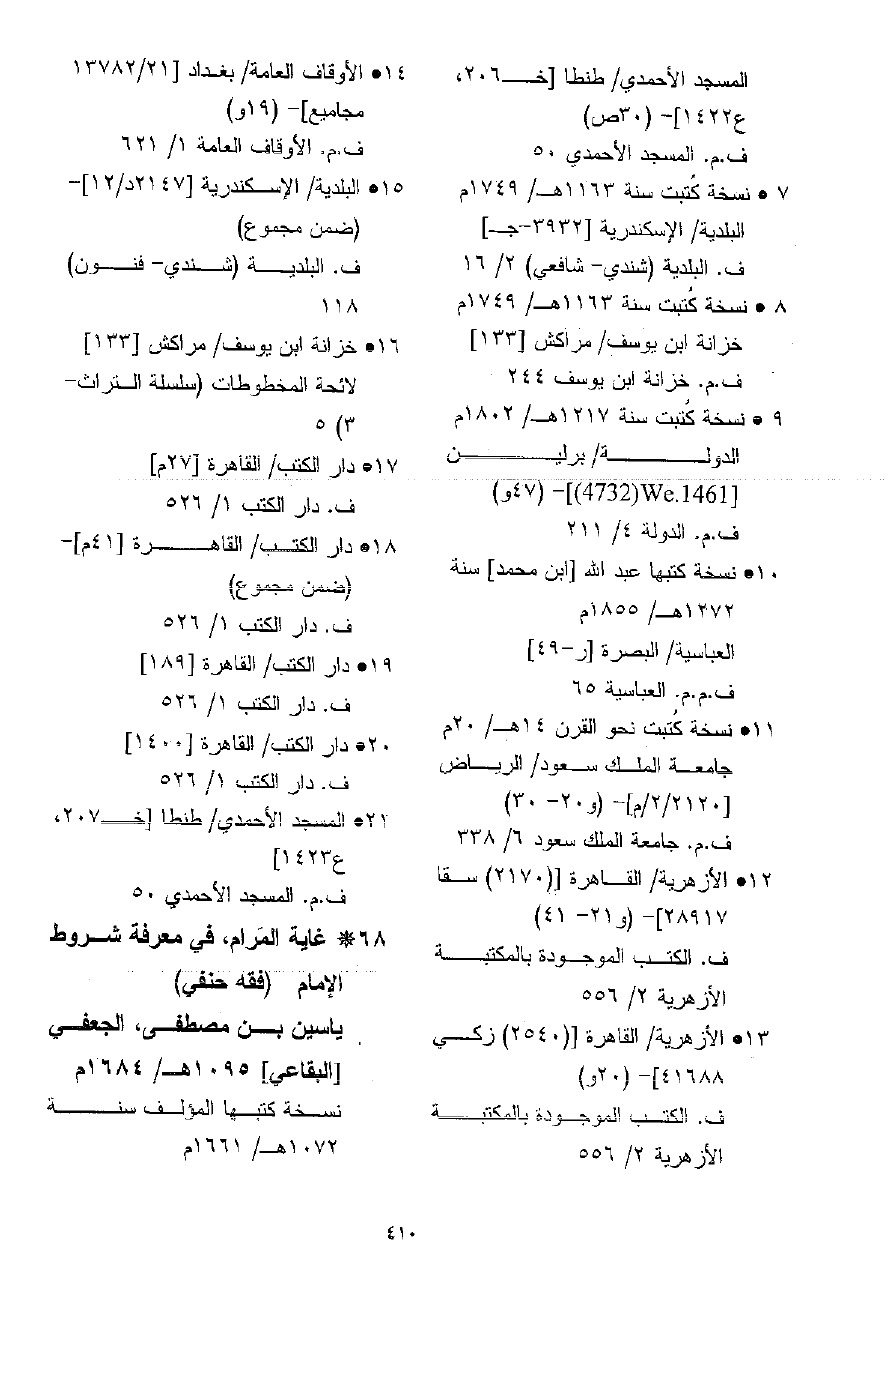 المسجد الأحمدي/ طنطا [خـ٢٠٦،
ع١٤٢٢]- (٣٠ص)
ف.م. المسجد الأحمدي ٥٠
٧ • نسخة كُتبت سنة ١١٦٣هـ/ ١٧٤٩م
البلدية/ الإسكندرية [٣٩٣٢-جـ]
ف. البلدية (شندي- شافعي) ٢/ ١٦
٨ • نسخة كُتبت سنة ١١٦٣هـ/ ١٧٤٩م
خزانة ابن يوسف/ مراكش [١٣٣]
ف.م. خزانة ابن يوسف ٢٤٤
٩ • نسخة كُتبت سنة ١٢١٧هـ/ ١٨٠٢م
الدولة/ برلين
[(4732)We.1461]- (٤٧و)
ف.م. الدولة ٤/ ٢١١
١٠• نسخة كتبها عبد الله [ابن محمد] سنة
١٢٧٢هـ/ ١٨٥٥م
العباسية/ البصرة [ر-٤٩]
ف.م.م. العباسية ٦٥
١١• نسخة كُتبت نحو القرن ١٤هـ/ ٢٠م
جامعة الملك سعود/ الرياض
[٢/٢١٢٠/م]- (و٢٠- ٣٠)
ف.م. جامعة الملك سعود ٦/ ٣٣٨
١٢• الأزهرية/ القاهرة [(٢١٧٠) سقا
٢٨٩١٧]- (و٢١- ٤١)
ف. الكتب الموجودة بالمكتبة
الأزهرية ٢/ ٥٥٦
١٣• الأزهرية/ القاهرة [(٢٥٤٠) زكي
٤١٦٨٨]- (٢٠و)
ف. الكتب الموجودة بالمكتبة
الأزهرية ٢/ ٥٥٦
١٤• الأوقاف العامة/ بغداد [١٣٧٨٢/٢١
مجاميع]- (١٩و)
ف.م. الأوقاف العامة ١/ ٦٢١
١٥• البلدية/ الإسكندرية [٢١٤٧د/١٢]-
(ضمن مجموع)
ف. البلدية (شندي- فنون)
١١٨
١٦• خزانة ابن يوسف/ مراكش [١٣٣]
لائحة المخطوطات (سلسلة التراث-
٣) ٥
١٧• دار الكتب/ القاهرة [٢٧م]
ف. دار الكتب ١/ ٥٢٦
١٨• دار الكتب/ القاهرة [٤١م]-
(ضمن مجموع)
ف. دار الكتب ١/ ٥٢٦
١٩• دار الكتب/ القاهرة [١٨٩]
ف. دار الكتب ١/ ٥٢٦
٢٠• دار الكتب/ القاهرة [١٤٠٠]
ف. دار الكتب ١/ ٥٢٦
٢١• المسجد الأحمدي/ طنطا [خـ٢٠٧،
ع١٤٢٣]
ف.م. المسجد الأحمدي ٥٠
٦٨* غاية المَرام، في معرفة شروط
الإمام (فقه حنفي)
ياسين بن مصطفى، الجعفي
[البقاعي] ١٠٩٥هـ/ ١٦٨٤م
نسخة كتبها المؤلف سنة
١٠٧٢هـ/ ١٦٦١م
٤١٠